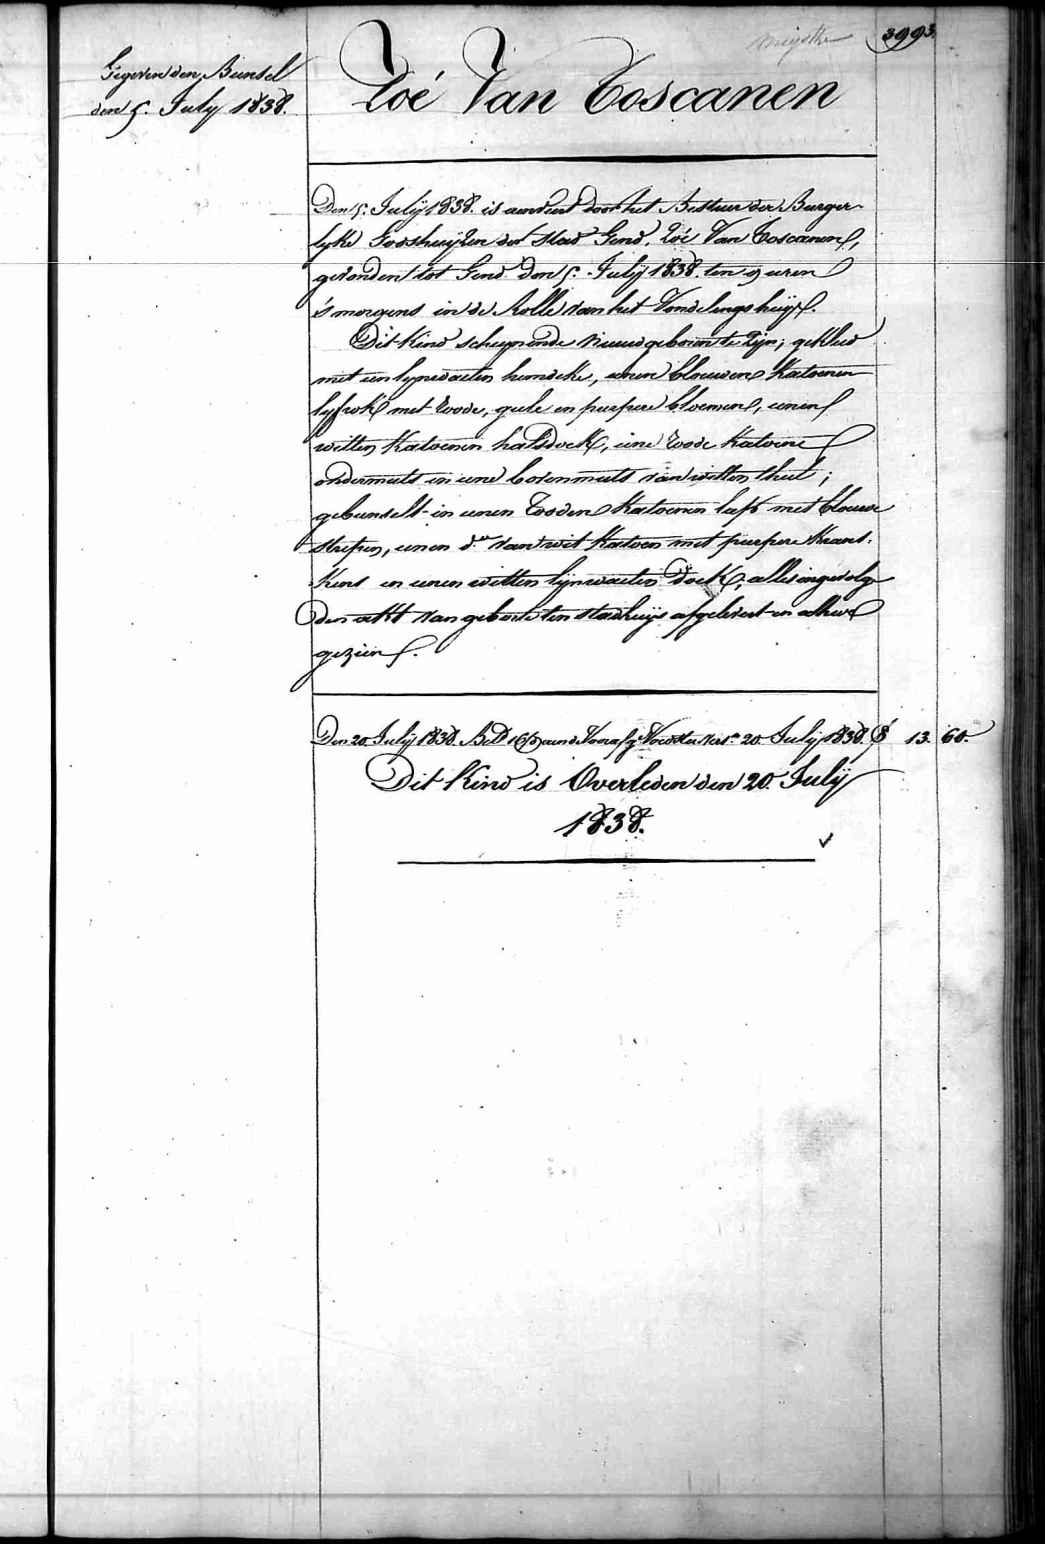 meijske 3993
Gegeven den Bunsel
den 5. July 1838.
Zoé Van Toscanen
Den 5. Julij 1838. is aenveert door het Bestuer der Burger-
lyke Godshuijzen der stad Gend, Zoé Van Toscanen,
gevonden tot Gend den 5. Julij 1838. ten 9 uren
s'morgens in de Rolle van het Vondelingshuijs.
Dit kind scheynende nieuwgeboren te zijn; gekleed
met een lynwaeten hemdeke, eenen blauwen katoenen
lyfrok met roode, geele en purpere bloemen, eenen
witten katoenen halsdoek, eene roode katoene
ondermuts en eene bovenmuts van witten thul;
gebunselt in eenen rooden katoenen lap met blauwe
strepen, eenen d.en van wit katoen met purpere krans-
kens en eenen witten lijnwaeten doek; alles ingevolge
den akt van geboorte ten stadhuijs afgelevert en alhier
gezien.
Den 20. Julij 1838. 20. Julij 1838. 13. 60.
Dit Kind is Overleden den 20. Julij
1838.